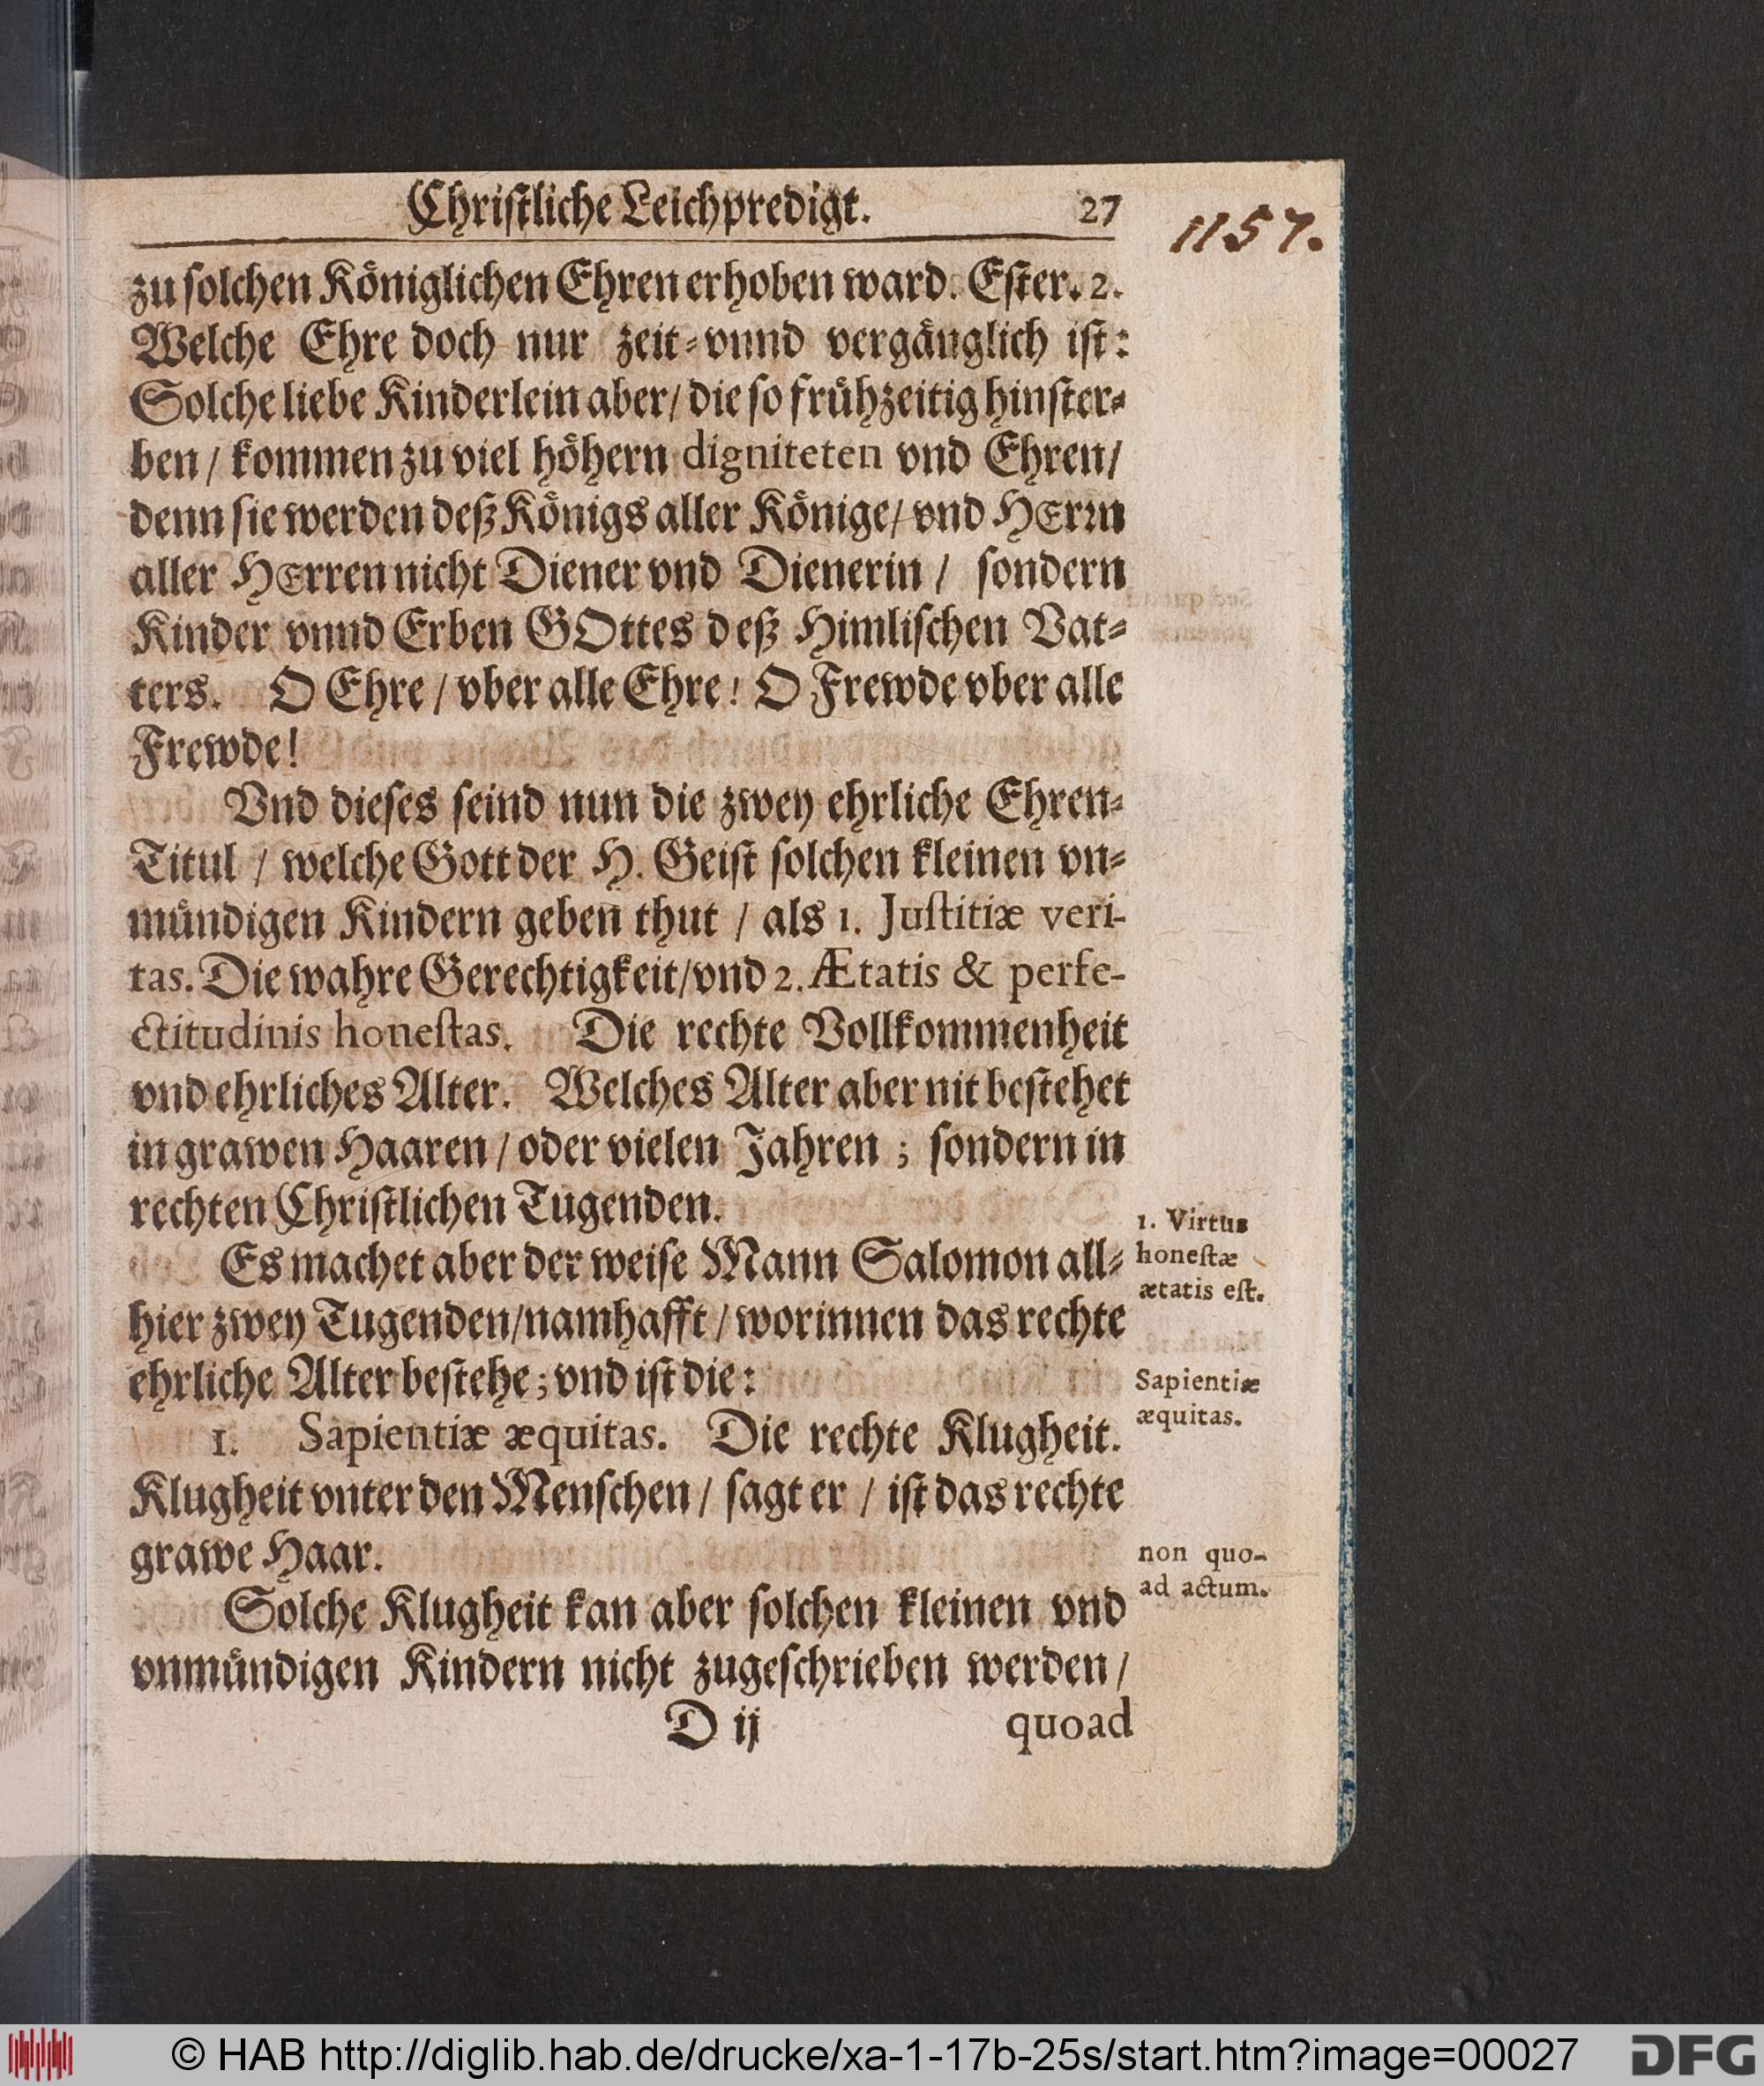 Chriſtliche Leichpredigt. 27
1157.
zu ſolchen Koͤniglichen Ehren erhoben ward. Eſter. 2.
Welche Ehre doch nur zeit⸗vnnd vergaͤnglich iſt:
Solche liebe Kinderlein aber/ die ſo fruͤhzeitig hinſter⸗
ben / kommen zu viel hoͤhern digniteten vnd Ehren/
denn ſie werden deß Koͤnigs aller Koͤnige/ vnd HErꝛn
aller HErren nicht Diener vnd Dienerin / ſondern
Kinder vnnd Erben GOttes deß Himliſchen Vat⸗
ters. O Ehre / vber alle Ehre! O Frewde vber alle
Frewde!
Vnd dieſes ſeind nun die zwey ehrliche Ehren⸗
Titul / welche Gott der H. Geiſt ſolchen kleinen vn⸗
muͤndigen Kindern geben thut / als 1. Juſtitiæ veri-
tas. Die wahre Gerechtigkeit/vnd 2. Ætatis & perfe-
ctitudinis honeſtas. Die rechte Vollkommenheit
vnd ehrliches Alter. Welches Alter aber nit beſtehet
in grawen Haaren / oder vielen Jahren ; ſondern in
rechten Chriſtlichen Tugenden.
Es machet aber der weiſe Mann Salomon all⸗
hier zwey Tugenden/namhafft / worinnen das rechte
ehrliche Alter beſtehe; vnd iſt die:
1. Sapientiæ æquitas. Die rechte Klugheit.
Klugheit vnter den Menſchen / ſagt er / iſt das rechte
grawe Haar.
Solche Klugheit kan aber ſolchen kleinen vnd
vnmuͤndigen Kindern nicht zugeſchrieben werden /
D ij quoad
1. Virtus
honeſtæ
ætatis eſt.
Sapientiæ
æquitas.
non quo-
ad actum.
© HAB http://diglib.hab.de/drucke/xa-1-17b-25s/start.htm?image=00027
DFG